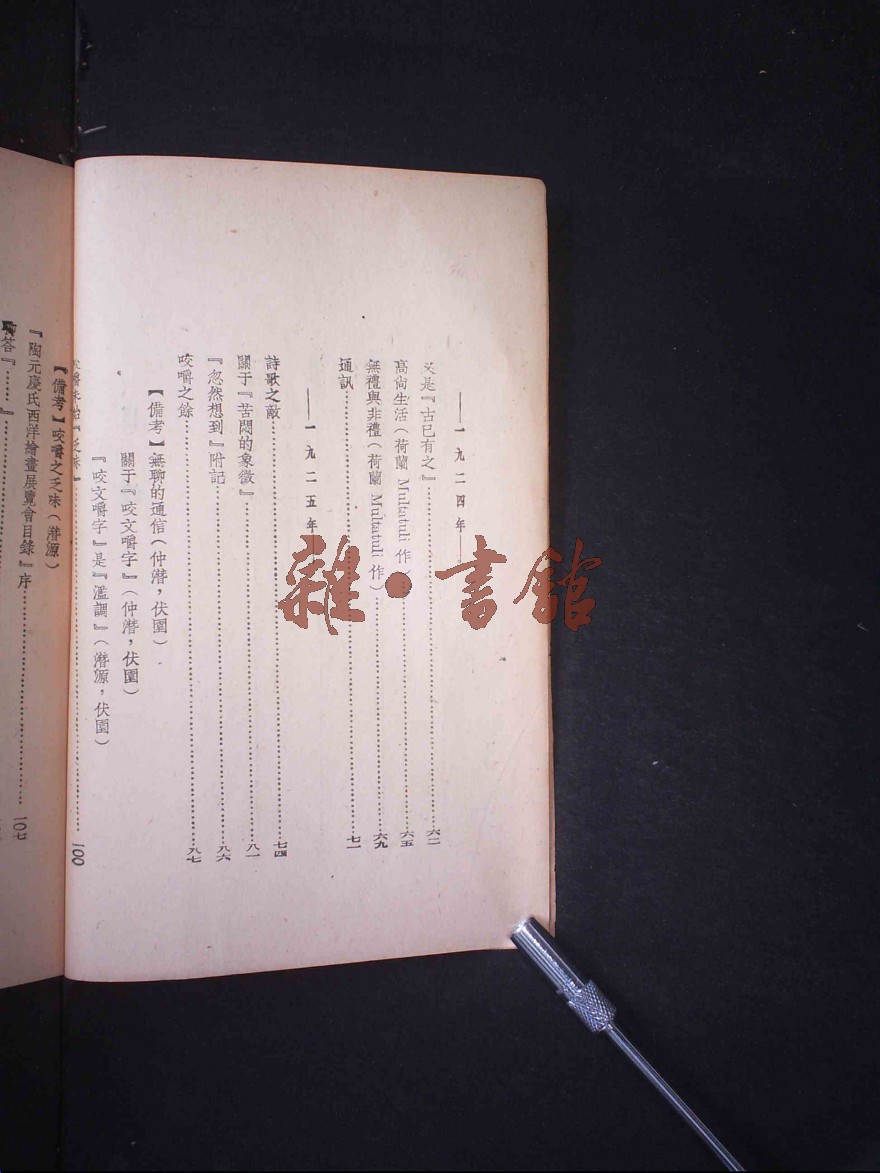 ——一九二四年——
又是『古已有之』……六二
高尚生活(荷蘭 Multatuli 作)……六五
無禮與非禮(荷蘭 Multatuli 作)……六九
通訊……七一
——一九二五年
詩歌之敵……七四
關于『苦悶的象徵』……八一
『忽然想到』附記……八六
咬嚼之餘……八七
【備考】無聊的通信(仲潛,伏園)
關于『咬文嚼字』(仲潛,伏園)
『咬文嚼字』是『濫調』(潛源,伏園)
『乏味』……100
【備考】咬嚼之乏味(潛源)
『陶元慶氏西洋繪畫展覽會目錄』序……10七
答『……』……
雜·書館